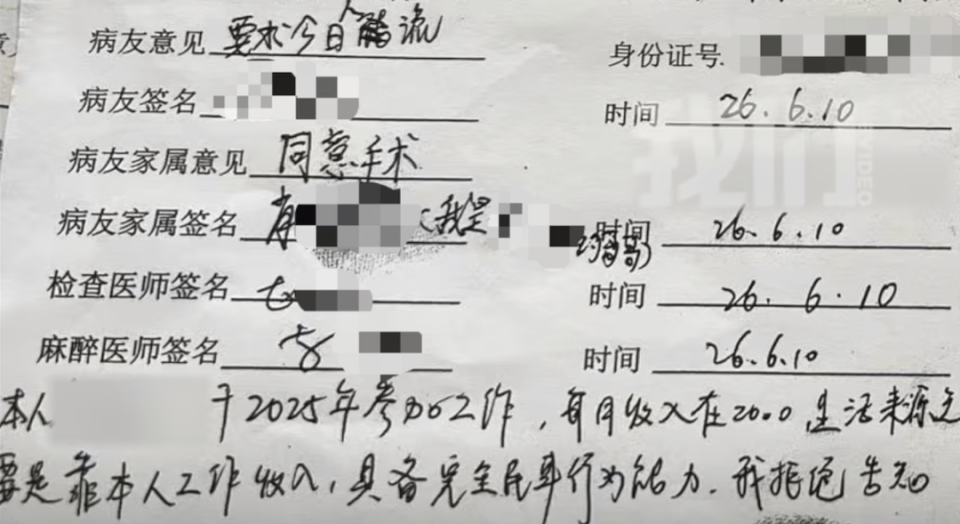 病友意见 要求今日人流 身份证号
病友签名 时间 26.6.10
病友家属意见 同意手术
病友家属签名 (我是 的哥哥) 时间 26.6.10
检查医师签名 时间 26.6.10
麻醉医师签名 时间 26.6.10
本人 于2025年参加工作，每月收入在2000 生活来源主
要是靠本人工作收入，具备完全民事行为能力。我拒绝告知
我们
VIDEO